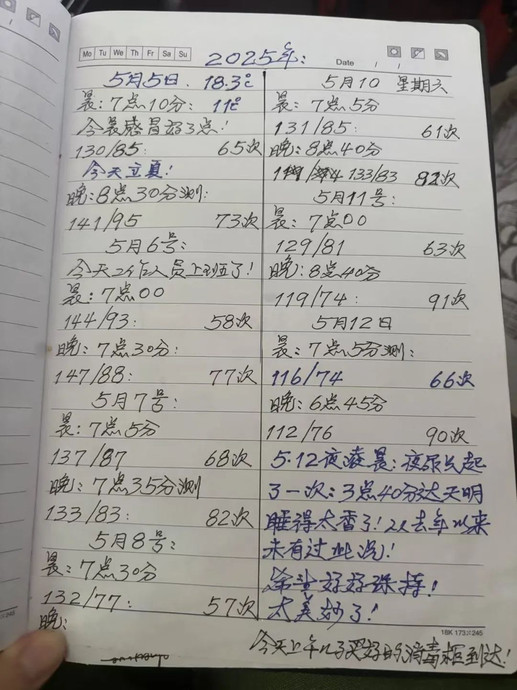 Mo Tu We Th Fr Sa Su
2025年:
Date / /
5月5日. 18.3℃
晨:7点10分: 11℃
今晨感冒好了点!
130/85: 65次
今天立夏!
晚:8点30分测:
141/95 73次
5月6号:
今天工作人员上班了!
晨:7点00
144/93: 58次
晚:7点30分:
147/88: 77次
5月7号:
晨:7点5分
137/87 68次
晚:7点35分测
133/83: 82次
5月8号:
晨:7点30分
132/77: 57次
晚:
5月10 星期六
晨:7点5分
131/85: 61次
晚:8点40分
133/83 82次
5月11号:
晨:7点00
129/81 63次
晚:8点40分
119/74: 91次
5月12日
晨:7点5分测:
116/74 66次
晚:6点45分
112/76 90次
5.12夜凌晨:夜尿只起
了一次:3点40分达天明
睡得太香了!以去年以来
未有过此况!
好好珠持!
太美妙了!
16K 173×245
今天上午儿子买好的消毒柜到达!